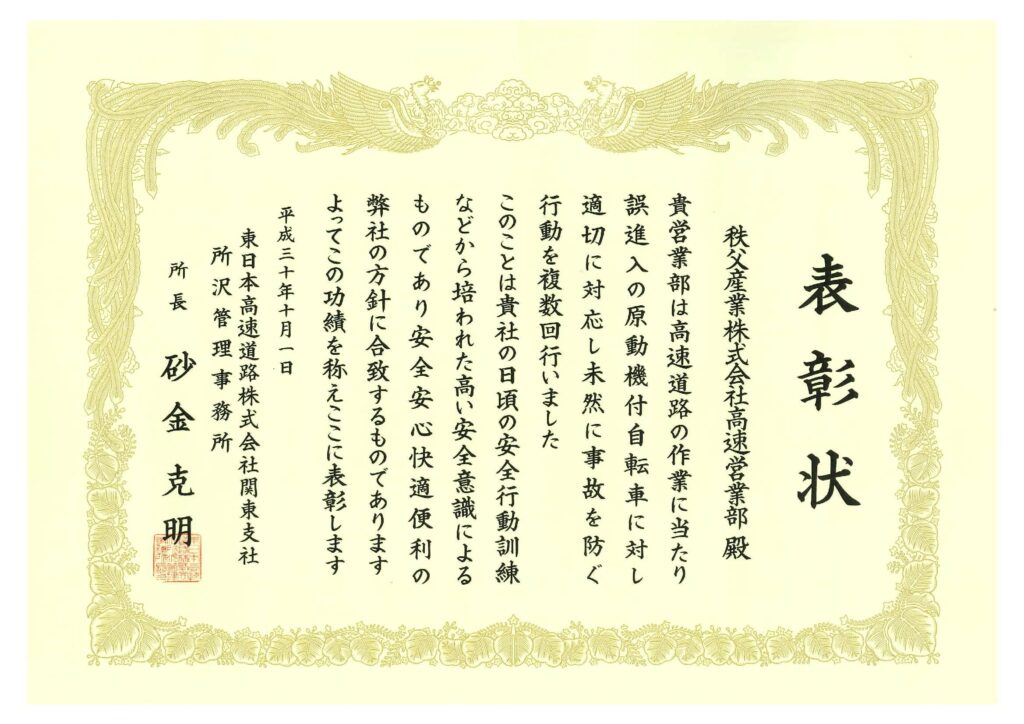 表彰状
秩父産業株式会社高速営業部 殿
貴営業部は高速道路の作業に当たり
誤進入の原動機付自転車に対し
適切に対応し未然に事故を防ぐ
行動を複数回行いました
このことは貴社の日頃の安全行動訓練
などから培われた高い安全意識による
ものであり安全安心快適便利の
弊社の方針に合致するものであります
よってこの功績を称えここに表彰します
平成三十年十月一日
東日本高速道路株式会社関東支社
所沢管理事務所
所長 砂金克明